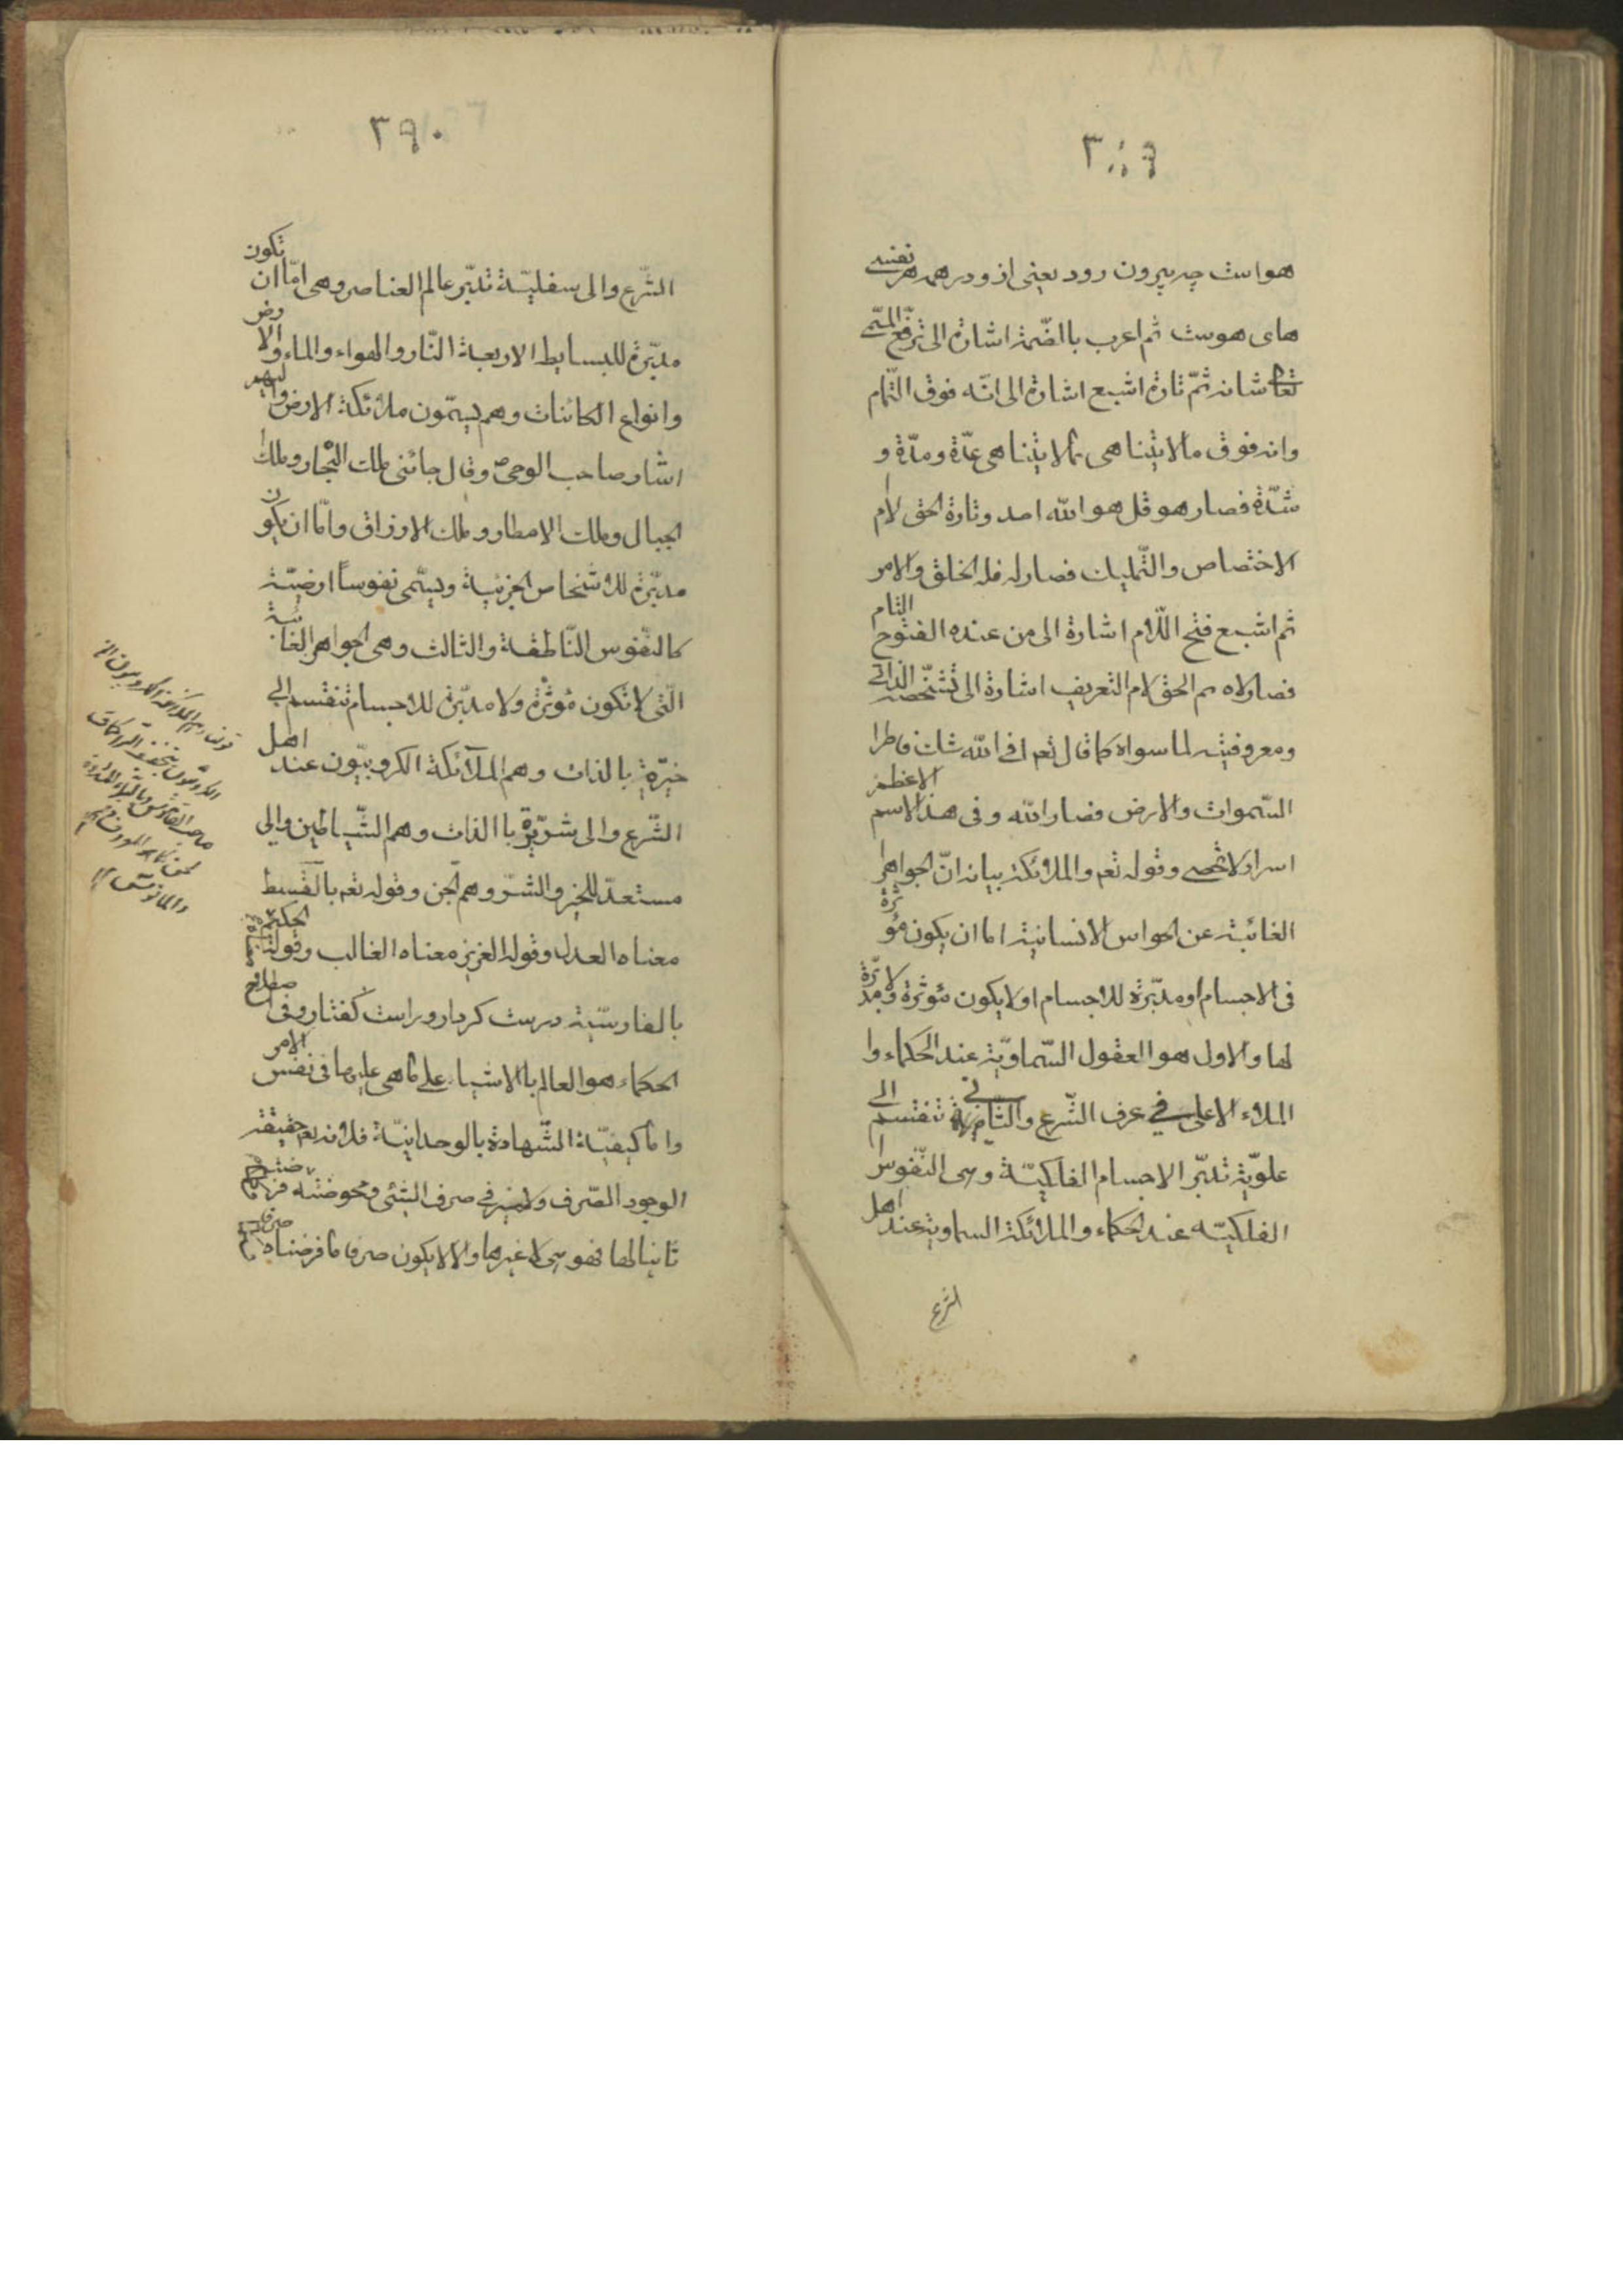 ٣٨٩
هواست چه بیرون رود یعنی از و در همه هر نفسه
های هوست ثم اعرب بالضّمة اشارة الی ترفّع المسمّی
تعا شانه ثمّ تارة اشبع اشارة الی انّه فوق التّمام
وانه فوق ما لا یتناهی بما لا یتناهی عدّة ومدّة و
شدّة فصار هو قل هو الله احد وتارة الحق لام
الاختصاص والتّملیك فصار له فله الخلق والامر
ثم اشبع فتح اللّام اشارة الی من عنده الفتوح التام
فصار لاه ثم الحق لام التعریف اشارة الی تشخّصه الذاتی
ومعروفیته لما سواه کما قال تعم افی الله شك فاطر ا
السّموات والارض فصار الله وفی هذا الاسم الاعظم
اسرار لا تحصی وقوله تعم والملائکة بیانه انّ الجواهر ا
الغائبة عن الحواس الانسانیة اما ان یکون مؤثرة
فی الاجسام او مدبّرة للاجسام او لا یکون مؤثرة ولا مدبّرة
لها والاول هو العقول السّماویّة عند الحکماء وا
الملاء الاعلی فی عرف الشّرع والثانی تنقسم الی
علویّة تدبّر الاجسام الفلکیّة وهی النّفوس ا
الفلکیّه عند الحکماء والملائکة السماویة عند اهل
الشرع
٣٩٠
الشّرع والی سفلیّة تدبّر عالم العناصر وهی امّا ان تکون
مدبّرة للبسایط الاربعة النّار والهواء والماء والارض
وانواع الکائنات وهم یسمّون ملائکة الارض والیهم
اشار صاحب الوحی ص وقال جائنی ملك البحار وملك
الجبال وملك الامطار وملك الارزاق وامّا ان یکون
مدبّرة للاشخاص الجزئیة ویسمّی نفوساً ارضیّة
کالنّفوس النّاطقة والثالث وهی الجواهر الغائبة
الّتی لا تکون مؤثرة ولا مدبّرة للاجسام تنقسم الی
خیّرة بالذات وهم الملآئکة الکروبیّون عند اهل
الشّرع والی شرّیرة باالذات وهم الشّیاطین والی
مستعدّ للخیر والشّرّ وهم الجن وقوله تعم بالقسط
معناه العدل وقوله العزیز معناه الغالب وقوله الحکیم
بالفارسّیة درست کردار وراست کفتار وفی اصطلاح
الحکماء هو العالم بالاشیاء علی ما هی علیها فی نفس الامر
واما کیفیّة الشّهادة بالوحدانیّة فلانه تعم حقیقة
الوجود الصّرف ولا میز فی صرف الشئی ومحوضته
ثانیا لها فهو هی لا غیرها والا لا یکون صرفا ما فرضناه صرفا